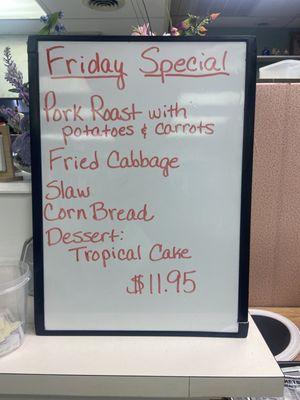 Friday Special
Pork Roast with
potatoes & carrots
Fried Cabbage
Slaw
Corn Bread
Dessert:
Tropical Cake
$11.95